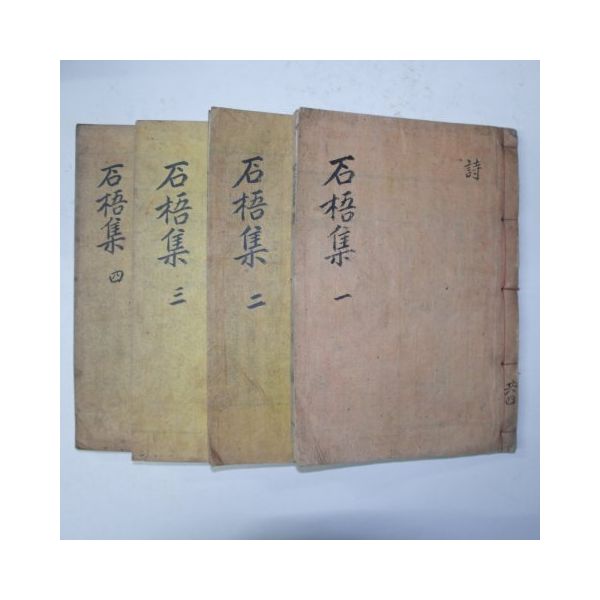 詩
石梧集 一
共四
石梧集 二
石梧集 三
石梧集 四